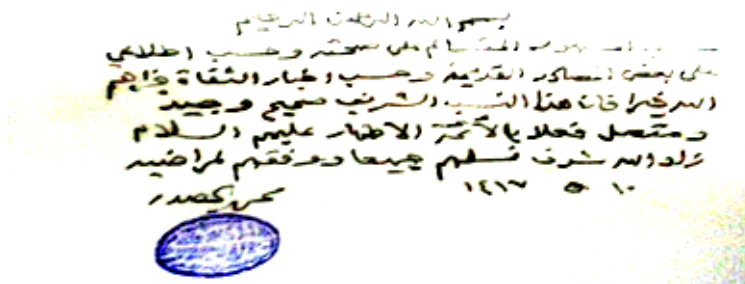 بسم الله الرحمن الرحيم
على صحته وحسب اطلاعي
على بعض المصادر القديمة وحسب اخبار الثقاة جزاهم
الله خيرا فان هذا النسب الشريف صحيح وجيد
ومتصل فعلا بالأئمة الاطهار عليهم السلام
زاد الله شرف نسلهم جميعا ووفقهم لمراضيه
١٠ ١٤١٧
الصدر